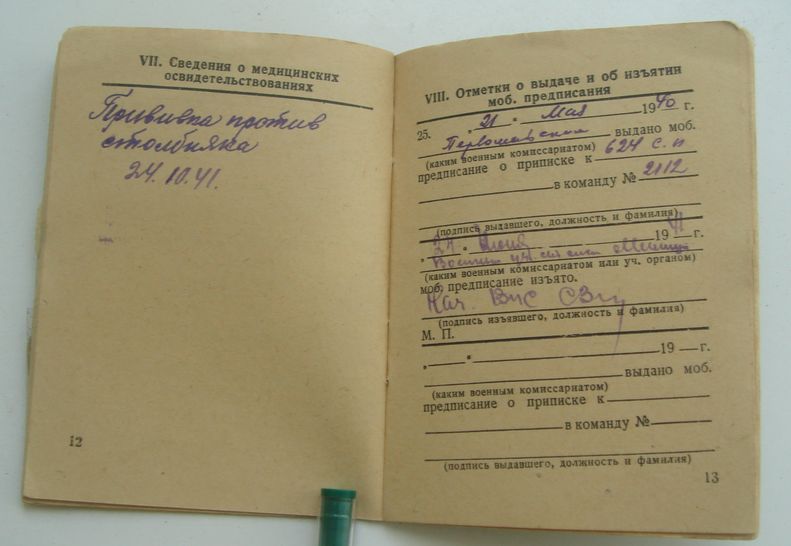 VII. Сведения о медицинских
освидетельствованиях
Прививка против
столбняка
24.10.41.
12
VIII. Отметки о выдаче и об изъятии
моб. предписания
25. „ 21 " Мая 1940 г.
выдано моб.
(каким военным комиссариатом)
предписание о приписке к 624 с.п
в команду № 2112
(подпись выдавшего, должность и фамилия)
„ 24 " Июня 1941 г.
(каким военным комиссариатом или уч. органом)
моб. предписание изъято.
Нач.
(подпись изъявшего, должность и фамилия)
М. П.
„ " 19 г.
выдано моб.
(каким военным комиссариатом)
предписание о приписке к
в команду №
(подпись выдавшего, должность и фамилия)
13